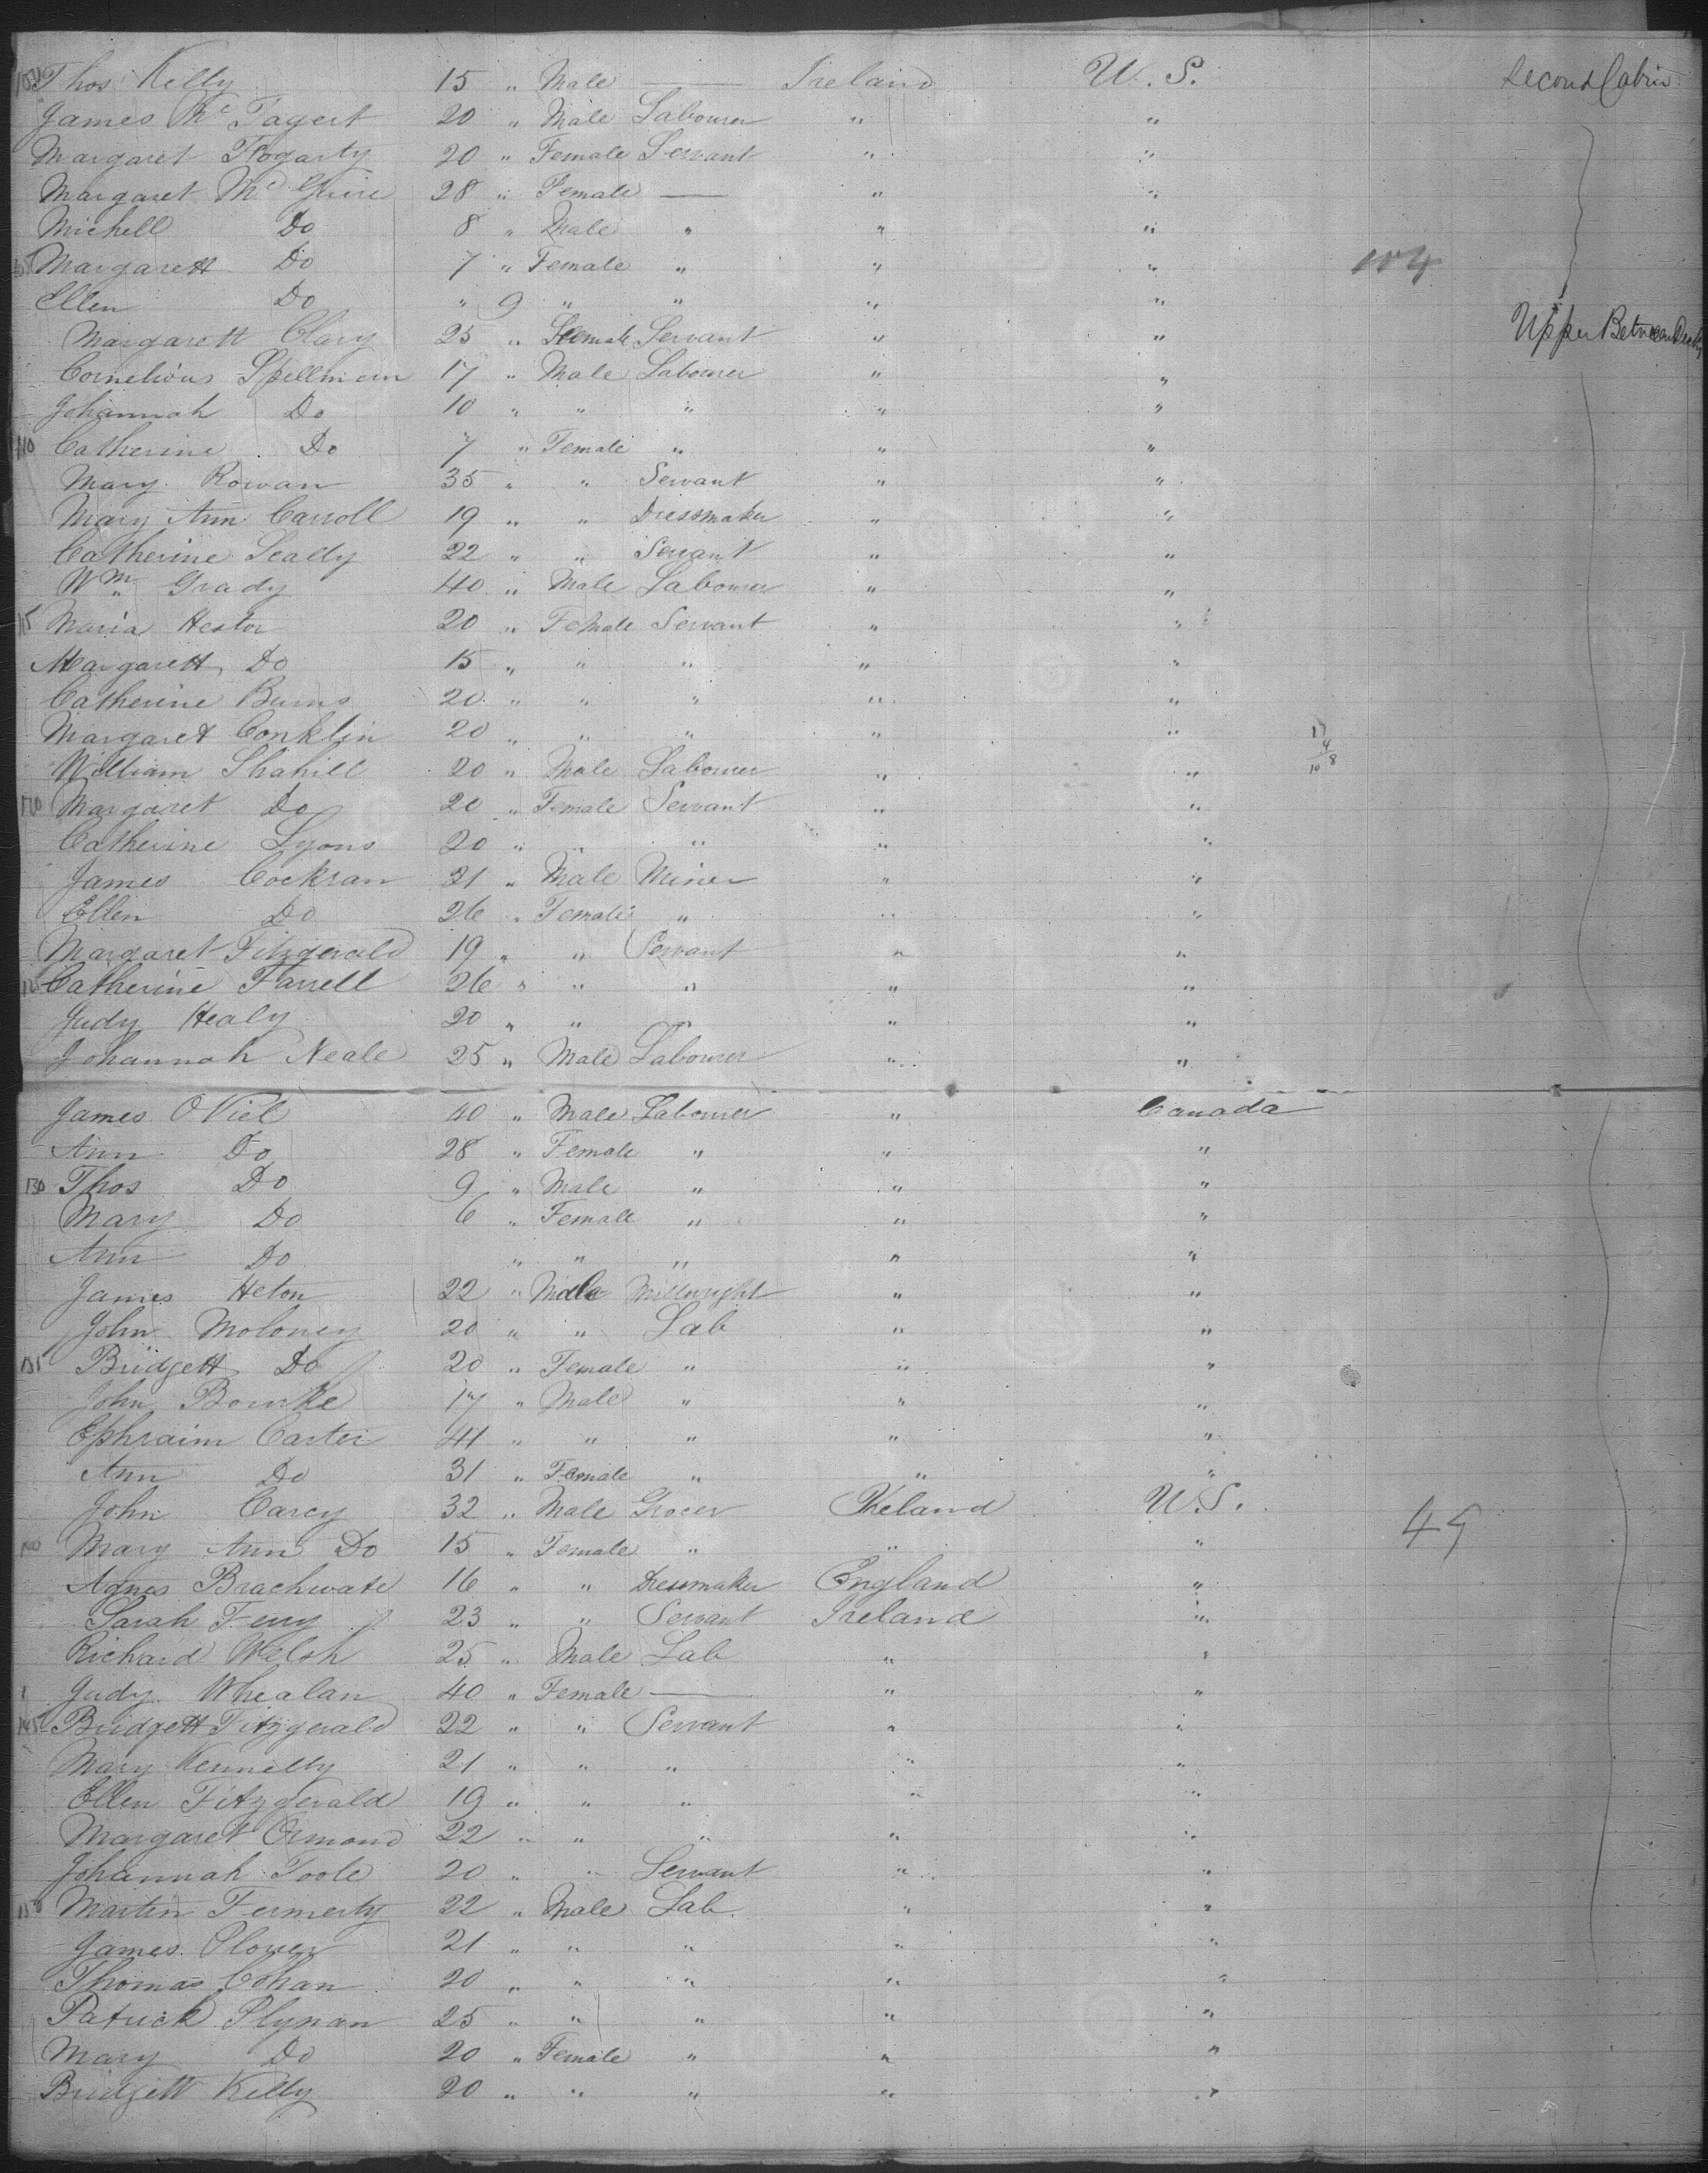 Thos Kelly 15 " Male — Ireland U. S. Second Cabin
James Mc Tagert 20 " Male Labourer " "
Margaret Fogarty 20 " Female Servant " "
Margaret Mc Guire 28 " Female — " "
Michell Do 8 " Male " " "
Margarett Do 7 " Female " " " 104
Ellen Do " 9 " " " "
Margarett Clary 25 " Female Servant " " Upper Between Decks
Cornelious Spellman 17 " Male Labourer " "
Johannah Do 10 " " " " "
110 Catherine Do 7 " Female " " "
Mary Rowan 35 " " Servant " "
Mary Ann Carroll 19 " " Dressmaker " "
Catherine Scally 22 " " Servant " "
Wm Grady 40 " Male Labourer " "
Maria Hestor 20 " Female Servant " "
Margarett Do 15 " " " " "
Catherine Burns 20 " " " " "
Margaret Conklin 20 " " " " "
William Shahill 20 " Male Labourer " "
Margaret Do 20 " Female Servant " "
Catherine Lyons 20 " " " " "
James Cockran 21 " Male Miner " "
Ellen Do 26 " Female " " "
Margaret Fitzgerald 19 " " Servant " "
Catherine Farrell 26 " " " " "
Judy Healy 20 " " " "
Johannah Neale 25 " Male Labourer " "
James O Niel 40 " Male Labourer " Canada
Ann Do 28 " Female " " "
130 Thos Do 9 " Male " " "
Mary Do 6 " Female " " "
Ann Do " " " " "
James Heton 22 " Male Millwright " "
John Moloney 20 " " Lab " "
135 Bridgett Do 20 " Female " " "
John Bourke 17 " Male " " "
Ephraim Carter 41 " " " " "
Ann Do 31 " Female " " "
John Carey 32 " Male Grocer Ireland U. S.
Mary Ann Do 15 " Female " " " 45
Agnes Brachwate 16 " " Dressmaker England "
Sarah Ferry 23 " " Servant Ireland "
Richard Welsh 25 " Male Lab " "
Judy Whealan 40 " Female — " "
145 Bridgett Fitzgerald 22 " " Servant " "
Mary Kennelly 21 " " " " "
Ellen Fitzgerald 19 " " " " "
Margaret Ormond 22 " " " " "
Johannah Toole 20 " " Servant " "
150 Martin Fermerty 22 " Male Lab " "
James Plover 21 " " " " "
Thomas Cohan 20 " " " " "
Patrick Plynan 25 " " " " "
Mary Do 20 " Female " " "
Bridgett Kelly 20 " " " " "